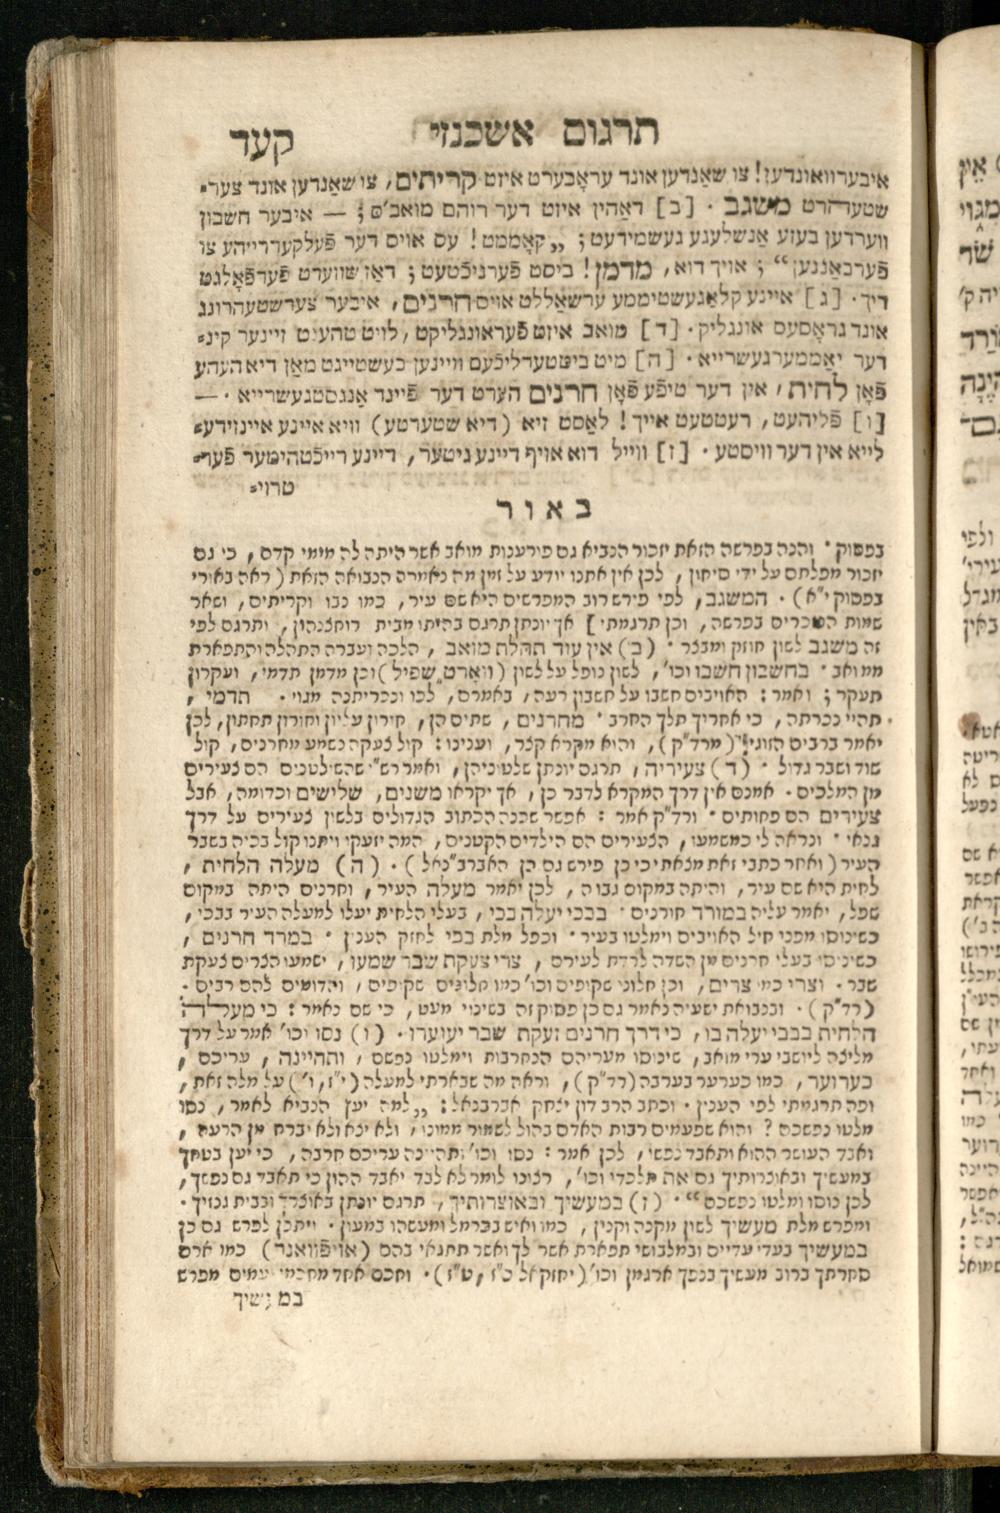 תרגום אשכנזי קעד
איבערוואונדען! צו שאַנדען אונד ערاָבערט איזט קריתים, צו שאַנדען אונד צער=
שטעהרט משגב · [ב] דאַהין איזט דער רוהם מואב'ס; — איבער חשבון
ווערדען בעזע אַנשלעגע געשמידעט; „קאָממט! עס אויס דער פֿעלקעררייהע צו
פֿערבאַננען“; אויך דוא, מדמן! ביסט פֿערניכֿטעט; דאַז שווערט פֿערפֿאָלגט
דיך· [ג] איינע קלאַגעשטיממע ערשאַללט אויס חרנים, איבער צערשטעהרונג
אונד גראָסעס אונגליק· [ד] מואב איזט פֿעראונגליקט, לויט טהענט זיינער קינ=
דער יאַממערגעשרייא· [ה] מיט ביטטערליכֿעם וויינען בעשטייגט מאַן דיא העהע
פֿאָן לחית, אין דער טיפֿע פֿאָן חרנים הערט דער פֿיינד אַנגסטגעשרייא · —
[ו] פֿליהעט, רעטטעט אייך! לאַסט זיא (דיא שטערטע) וויא איינע איינזידע=
לייא אין דער וויסטע· [ז] ווייל דוא אויף דיינע גיטער, דיינע רייכֿטהימער פֿער=
טרוי=
באור
בפסוק· והנה בפרשה הזאת יזכור הנביא גם פורענות מואב אשר היתה לה מימי קדם, כי גם
יזכור מפלתם על ידי סיחון, לכן אין אתנו יודע על זמן מה נאמרה הנבואה הזאת (ראה באורי
בפסוק י"א)· המשגב, לפי פירש רוב המפרשים היא שם עיר, כמו נבו וקריתים, ושאר
שמות הנזכרים בפרשה, וכן תרגמתי] אך יונתן תרגם בהיתו מבית רוחצנהון, ותרגם לפי
זה משגב לשון חוזק ומבצר· (ב) אין עוד תהלת מואב, הלכה ועברה התהלה והתפארת
ממואב· בחשבון חשבו וכו', לשון נופל על לשון (וואָרט שפיל) וכן מדמן תדמי, ועקרון
תעקר; ואמר: האויבים חשבו על חשבון רעה, באמרם, לכו ונכריתנה מגוי· תדמי,
תהיי נכרתה, כי אחריך תלך החרב· מחרנים, שתים הן, חורון עליון וחורון תחתון, לכן
יאמר ברבים הזוגיי (מרד"ק), והוא מקרא קצר, וענינו: קול צעקה נשמע מחרנים, קול
שוד ושבר גדול· (ד) צעיריה, תרגם יונתן שלטוניהן, ואמר רש"י שהשלטנים הם צעירים
מן המלכים· אמנם אין דרך המקרא לדבר כן, אך יקראו משנים, שלישים וכדומה, אבל
צעירים הם פחותים· ורד"ק אמר: אפשר שכנה הכתוב הגדולים בלשון צעירים על דרך
גנאי· ונראה לי כמשמעו, הצעירים הם הילדים הקטנים, המה יזעקו ויתנו קול בכיה בשבר
העיר (ואחר כתבי זאת מצאתי כי כן פירש גם כן האברב"נאל)· (ה) מעלה הלחית,
לחית היא שם עיר, והיתה במקום גבוה, לכן יאמר מעלה העיר, וחרנים היתה במקום
שפל, יאמר עליה במורד חורנים· בבכי יעלה בכי, בעלי הלחית יעלו למעלה העיר בבכי,
כשינוסו מפני חיל האויבים וימלטו בעיר· וכפל מלת בכי לחזק הענין· במרד חרנים,
כשינוסו בעלי חרנים מן השדה לרדת לעירם, צרי צעקת שבר שמעו, ישמעו הצרים צעקת
שבר· וצרי כמו צרים, וכן חלוני שקופים וכו' כמו חלונים שקופים, והדומים להם רבים·
(רד"ק)· ובנבואת ישעיה נאמר גם כן פסוק זה בשינוי מעט, כי שם נאמר: כי מעלה
הלחית בבכי יעלה בו, כי דרך חרנים זעקת שבר יעוערו· (ו) נסו וכו' אמר על דרך
מליצה ליושבי ערי מואב, שינוסו מעריהם הנחרבות וימלטו נפשם, ותהיינה, עריכם,
כערוער, כמו כערער בערבה (רד"ק), וראה מה שבארתי למעלה (י"ז, ו') על מלה זאת,
ופה תרגמתי לפי הענין· וכתב הרב דון יצחק אברבנאל: „למה יעץ הנביא לאמר, נסו
מלטו נפשכם? והוא שפעמים רבות האדם בהול לשמור ממונו, ולא יצא ולא יברח מן הרעה,
ואבד העושר ההוא ותאבד נפשו, לכן אמר: נסו וכו' ותהיינה עריכם חרבה, כי יען בטחך
במעשיך ובאוצרותיך גם את תלכדי וכו', רצונו לומר לא לבד יאבד ההון כי תאבד גם נפשך,
לכן נוסו ומלטו נפשכם“· (ז) במעשיך ובאוצרותיך, תרגם יונתן באוצרך ובבית גנזיך·
ומפרש מלת מעשיך לשון מקנה וקנין, כמו ואיש בכרמל ומעשהו במעון· ויתכן לפרש גם כן
במעשיך בעדי עדיים ובמלבושי תפארת אשר לך ואשר תתגאי בהם (אויפֿוואַנד) כמו ארם
סחרתך ברוב מעשיך בנפך ארגמן וכו' (יחזקאל כ"ז, ט"ז)· וחכם אחד מחכמי עמים מפרש
במעשיך